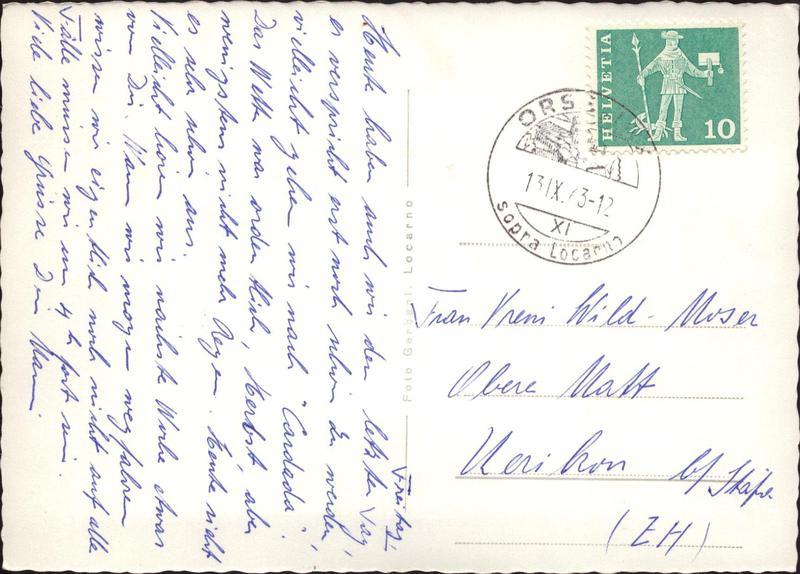 Freitag.
Heute haben auch wir den letzten Tag,
es verspricht erst noch schön zu werden
vielleicht gehen wir nach "Cardada".
Das Wetter war ordentlich, Herbst aber
wenigstens nicht mehr Regen. Heute nicht
es sehr schön aus.
Vielleicht hören wir nächste Woche etwas
von Dir. Wann wir morgen wegfahren
wissen wir eigentlich noch nicht auf alle
Fälle müssen wir um 4 h fort sein.
Viele liebe Grüsse Dein
Foto Garbani, Locarno
HELVETIA
10
ORS
13.IX.63-12
XI
sopra Locarno
Frau Vreni Wild-Moser
Obere Matt
Uerikon b/Stäfa
(ZH)